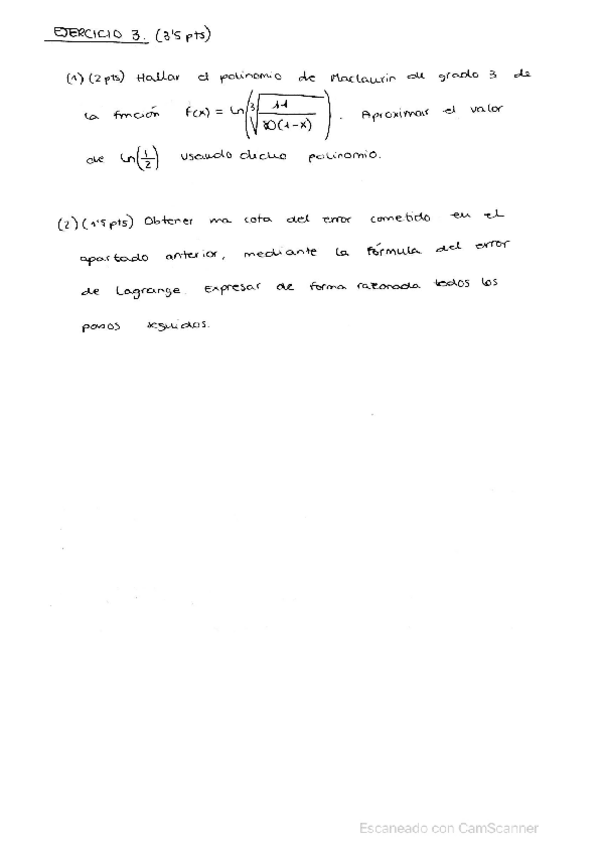 EJERCICIO 3. (3'5 pts)
(1) (2 pts) Hallar el polinomio de Maclaurin de grado 3 de
la función f(x) = ln(∛(11/10(1-x))). Aproximar el valor
de ln(1/2) usando dicho polinomio.
(2) (1'5 pts) Obtener una cota del error cometido en el
apartado anterior, mediante la fórmula del error
de Lagrange. Expresar de forma razonada todos los
pasos seguidos.
Escaneado con CamScanner